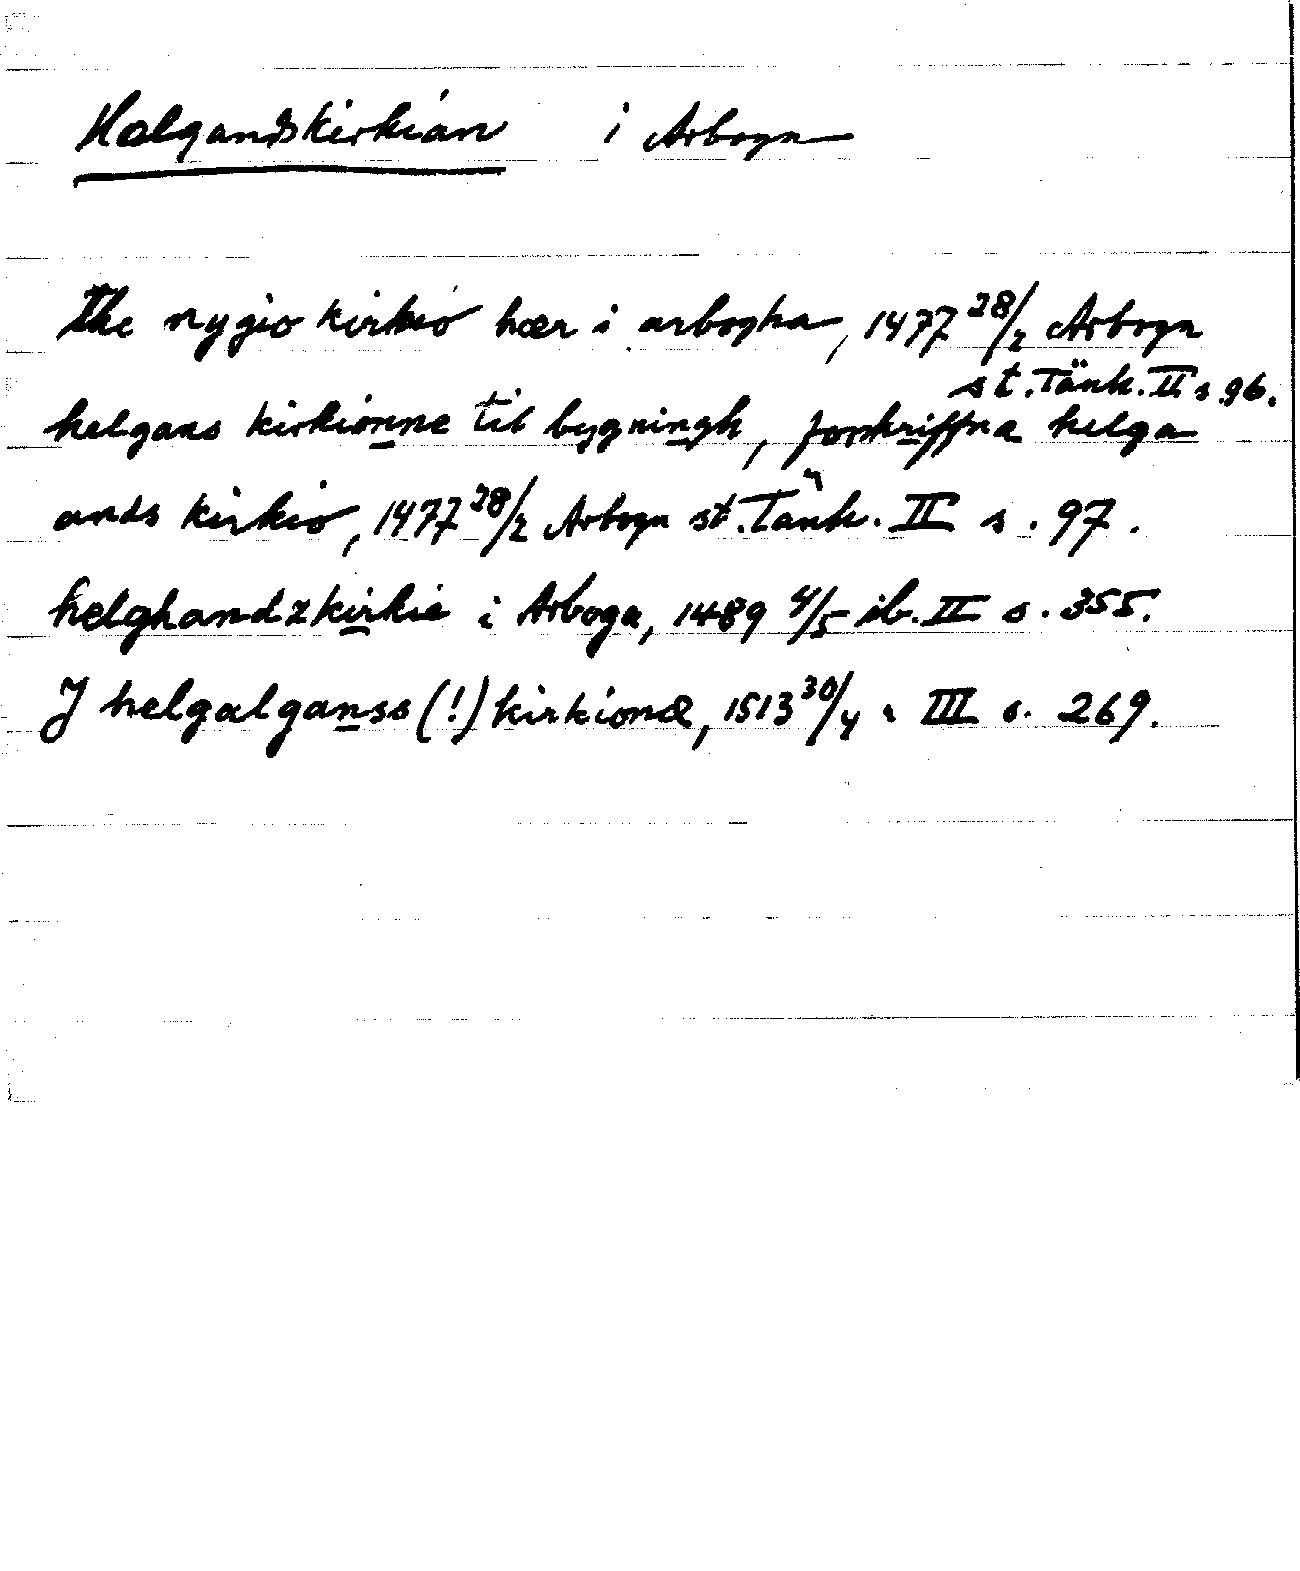 Helgandskirkian i Arboga
The nygio kirkio hær i arbogha, 1477 28/2 Arboga
st. Tänk. II s. 96.
helgans kirkionne til bygningh, forskriffna helga
ands kirkio, 1477 28/2 Arboga st. Tänk. II s. 97.
helghandzkirkie i Arboga, 1489 4/5 ib. II s. 355.
J helgalganss (!) kirkionæ, 1513 30/4 " III s. 269.